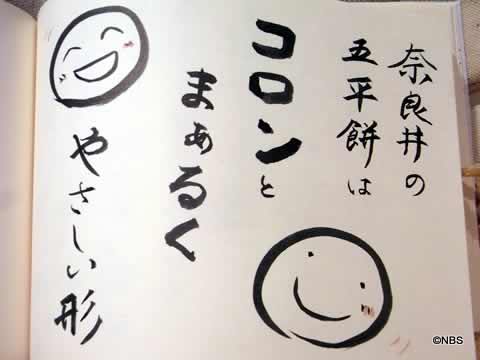 奈良井の
五平餅は
コロンと
まぁるく
やさしい形
©NBS